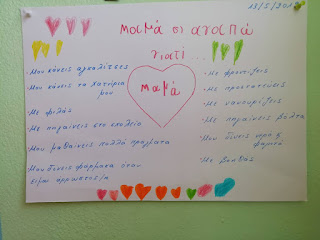 13/5/201
μαμά σι αγαπώ
γιατί...
μαμά
-Μου κάνεις αγκαλίτσες
-Μου κάνεις τα χατήρια
μου
-Με φιλάς
-Με πηγαίνεις στο σχολείο
-Μου μαθαίνεις πολλά πράγματα
-Μου δίνεις φάρμακα όταν
είμαι άρρωστος/η
-Με φροντίζεις
-Με προστατεύεις
-Με νανουρίζεις
-Με πηγαίνεις βόλτα
-Μου δίνεις νερό &
φαγητό
-Με βοηθάς